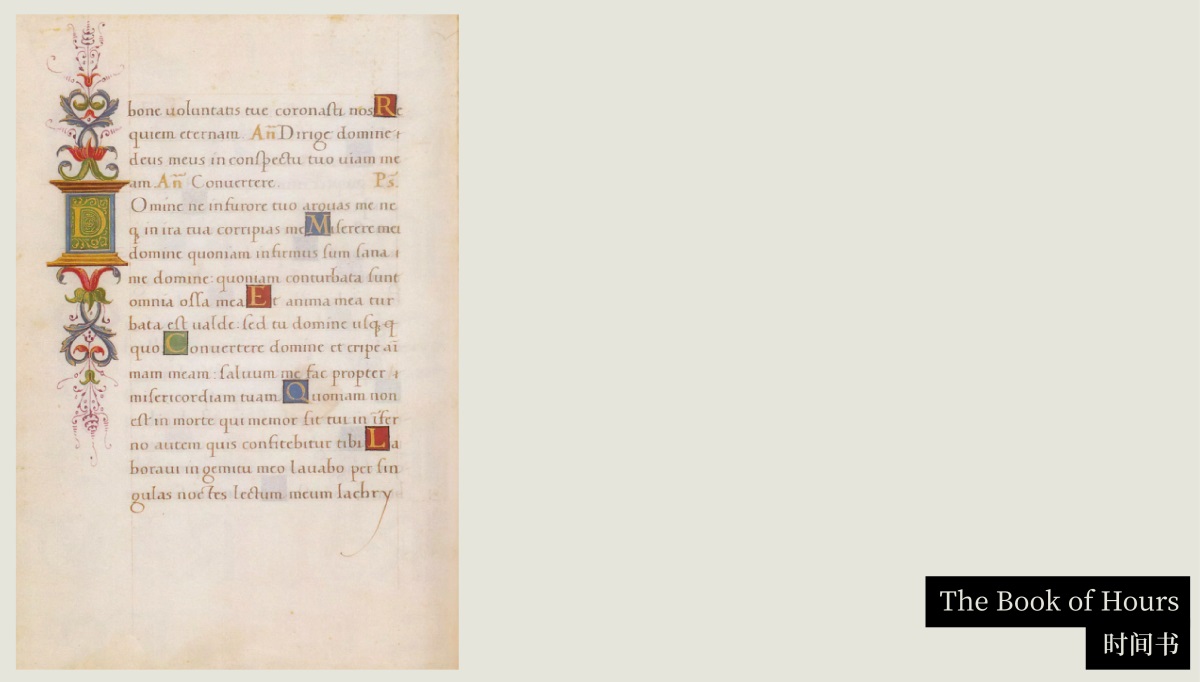 bone uoluntatis tue coronasti nos Re
quiem eternam. An̄ Dirige domine
deus meus in conspectu tuo uiam me
am An̄ Conuertere. Ps̄.
D Omine ne in furore tuo arguas me ne
q, in ira tua corripias me Miserere mei
domine quoniam infirmus sum sana
me domine: quoniam conturbata sunt
omnia ossa mea Et anima mea tur
bata est ualde: sed tu domine usq, q
quo Conuertere domine et eripe aī
mam meam: saluum me fac propter
misericordiam tuam. Quoniam non
est in morte qui memor sit tui in īfer
no autem quis confitebitur tibi La
boraui in gemitu meo lauabo per sin
gulas noctes lectum meum lachry
The Book of Hours
时间书